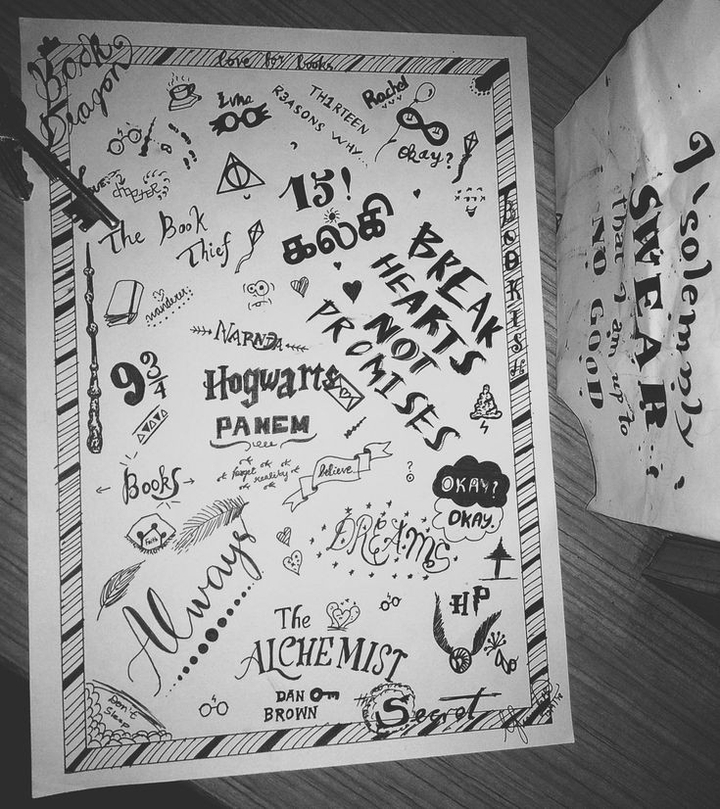 Book
Dragon
love for books
Luke
TH1RTEEN
R3ASONS WHY...
Rachel
okay?
15!
கல்கி
The Book
Thief
BREAK
HEARTS
NOT
PROMISES
BOOKISH
wanderer
NARNIA
9 3/4
Hogwarts
PANEM
forget
reality
believe
Books
Faith
OKAY?
OKAY.
DREAMS
Always
HP
The
ALCHEMIST
DAN
BROWN
the Secret
Don't
Sleep
I solemnly
SWEAR
that I am up to
NO GOOD